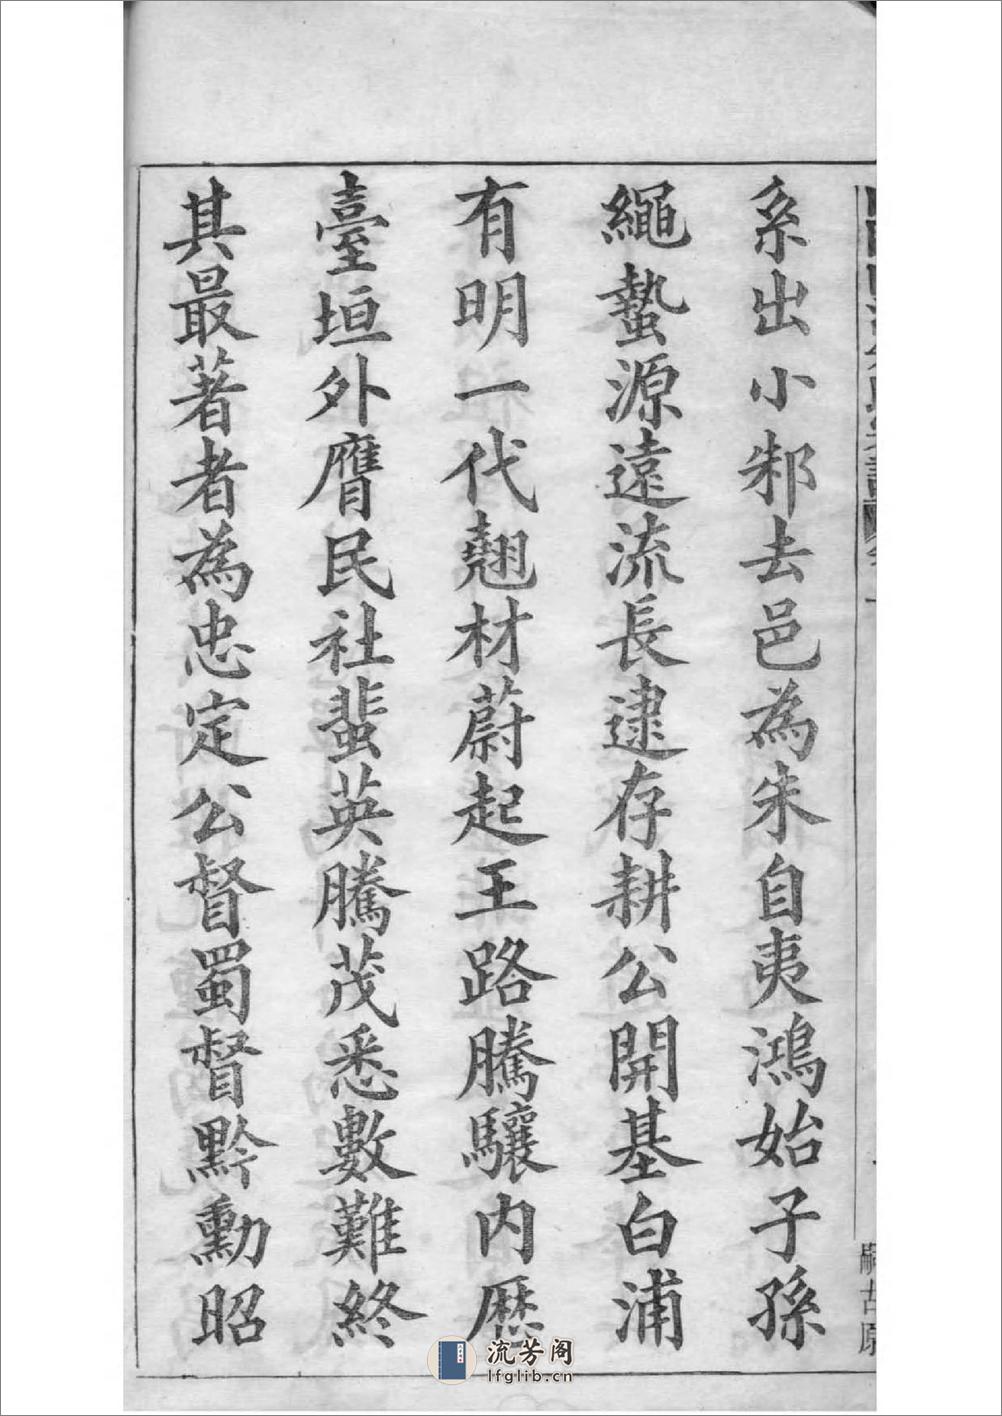 系出小邾去邑為朱自夷鴻始子孫
繩蟄源遠流長逮存耕公開基白浦
有明一代翹材蔚起王路騰驤内歷
臺垣外膺民社蜚英騰茂悉數難終
其最著者為忠定公督蜀督黔勳昭
流芳阁
lfglib.cn